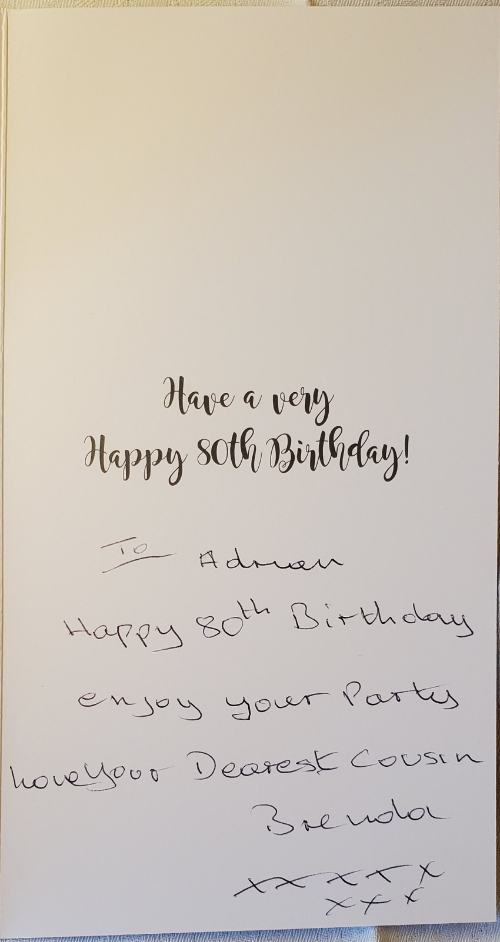 Have a very
Happy 80th Birthday!
To Adrian
Happy 80th Birthday
enjoy your Party
Love Your Dearest Cousin
Brenda
xx x x x
x x x